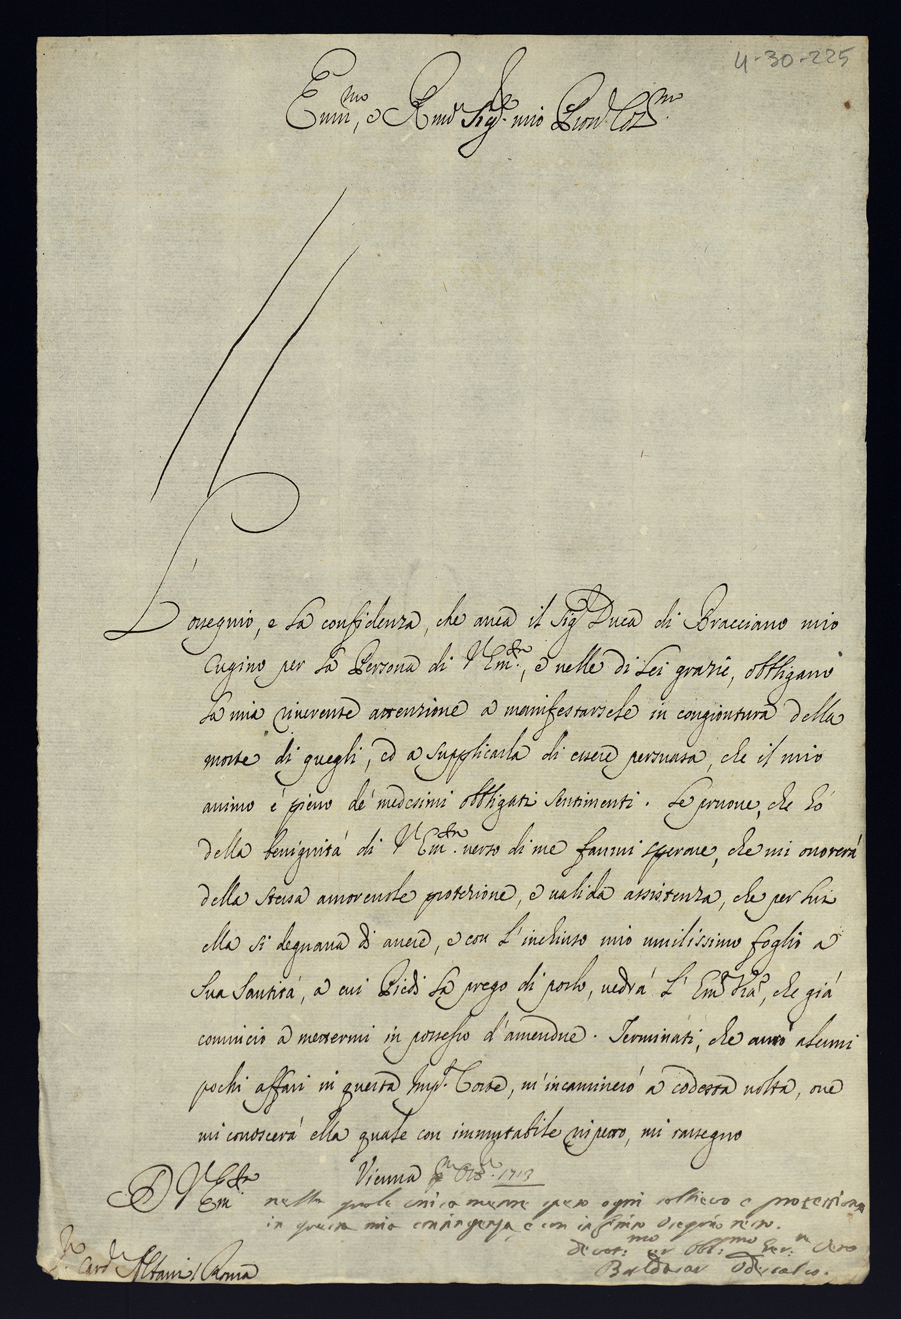 4-30-225
Emin.mo, e Rmo Sig.r mio Pron. Col.mo
L'ossequio, e la confidenza, che avea il Sig.r Duca di Bracciano mio
Cugino per la Persona di V Em.za, e nelle di Lei grazie, obbligano
la mia riverente attenzione a manifestarsele in congiontura della
morte di quegli, ed a supplicarla di essere persuasa, che il mio
animo è pieno de' medesimi obbligati sentimenti. Le pruove, che hò
della benignità di V Em.za verso di me fanmi sperare, che mi onorerà
della stessa amorevole protezione, e valida assistenza, che per lui
ella si degnava di avere, e con l'inchiuso mio umilissimo foglio a
Sua Santità, a cui Piedi la prego di porlo, vedrà l'Em. V.ra, che già
comincio a mettermi in possesso d'amendue. Terminati, che avrò alcuni
pochi affari in questa Imp.l Corte, m'incaminerò a codesta volta, ove
mi conoscerà ella quale con immutabile rispetto, mi rassegno
Vienna p.mo Ott.re 1713
D V Em.za
nella quale unicamente spero ogni sollievo e protezzione
in questa mia contingenza, e con infinito ossequio resto.
devot.mo et obl.mo Ser.re vero
Baldassar Odescalco.
S.r Card.le Albani / Roma